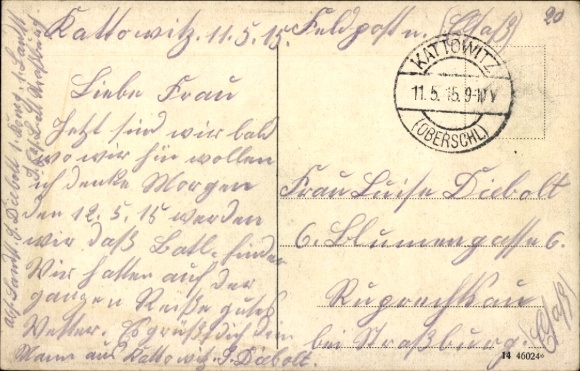 Kattowitz. 11.5.15.
Liebe Frau
Jetzt sind wir bald
wo wir hin wollen
ich denke Morgen
den 12.5.15 werden
wir daß Batl. finden
Wir hatten auf der
ganzen Reiße gutes
Wetter. Es grüßt dich dein
Mann aus Kattowitz. J. Diebolt.
Feldpost n. (Elsaß)
20
KATTOWITZ
11.5.15.9-10V
(OBERSCHL)
Frau Luise Diebolt
6. Blumengasse 6.
Ruprechtsau
bei Straßburg. (Elsaß)
14 46024
J. Diebolt